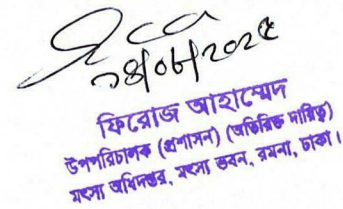 ১৪/০৮/২০২৫
ফিরোজ আহাম্মেদ
উপপরিচালক (প্রশাসন) (অতিরিক্ত দায়িত্ব)
মৎস্য অধিদপ্তর, মৎস্য ভবন, রমনা, ঢাকা।